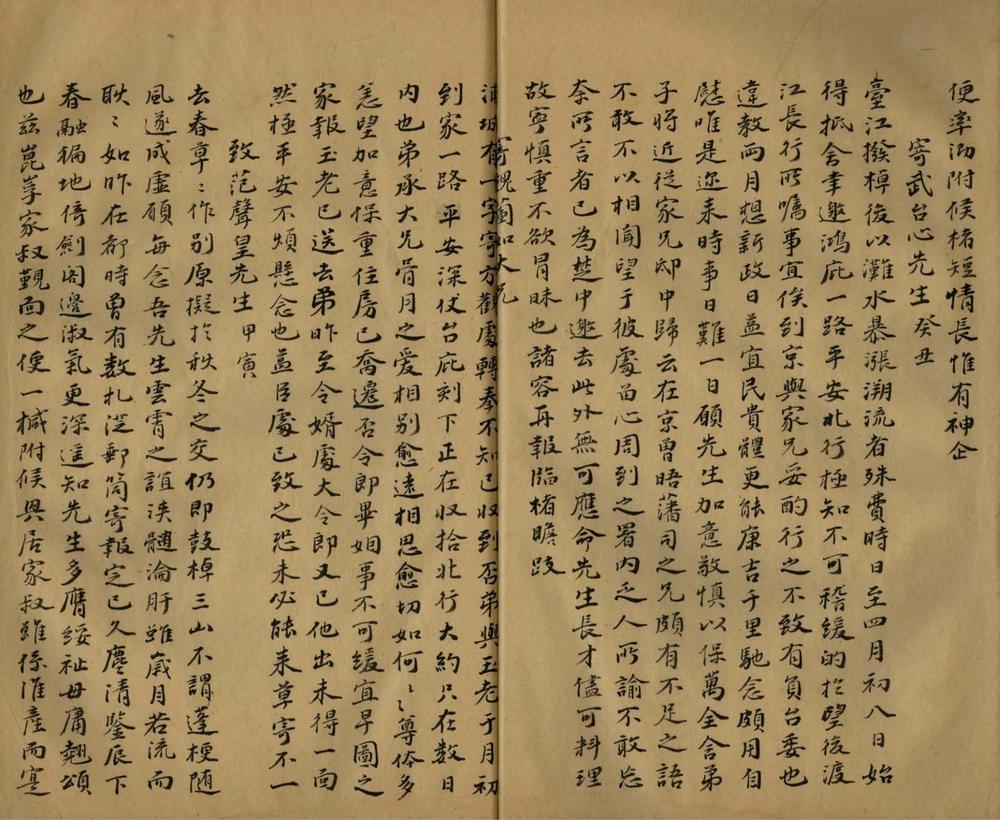 便率泐附候楮短情長惟有神企
寄武台心先生 癸丑
臺江撥棹後以灘水暴漲溯流者殊費時日至四月初八日始
得抵舍幸邀鴻庇一路平安北行極知不可稽緩的於望後渡
江長行所囑事宜俟到京與家兄妥酌行之不致有負台委也
違教兩月想新政日益宜民貴體更能康吉千里馳念頗用自
慰唯是邇来時事日難一日願先生加意敬慎以保萬全舍弟
子將近從家兄邸中歸云在京曾晤藩司之兄頗有不足之語
不敢不以相聞望于彼處留心周到之署内乏人所諭不敢忘
奈所言者已為楚中邀去此外無可應命先生長才儘可料理
故寧慎重不欲冒昧也諸容再報臨楮瞻跂
寄程蘭口大兄
浦城有一字寄方觀處轉奉不知已收到否弟與玉老于月初
到家一路平安深仗台庇刻下正在收拾北行大約只在數日
内也弟承大兄骨月之愛相別愈遠相思愈切如何〻尊体多
恙望加意保重住房已喬遷否令郎畢姻事不可緩宜早圖之
家報玉老已送去弟昨至令婿處大令郎又已他出未得一面
然極平安不煩懸念也益臣處已致之恐未必能来草寄不一
致范聲皇先生 甲寅
去春草〻作別原擬於秋冬之交仍即鼓棹三山不謂蓬梗隨
風遂成虛願每念吾先生雲霄之誼浹髓淪肝雖歲月若流而
耿〻如昨在都時曾有数札泛郵筒寄報定已久塵清鑒辰下
春融徧地倚劍閣邊淑氣更深遥知先生多膺綏祉毋庸翹頌
也茲崑孳家叔覲面之便一槭附候興居家叔雖係淮產而寔